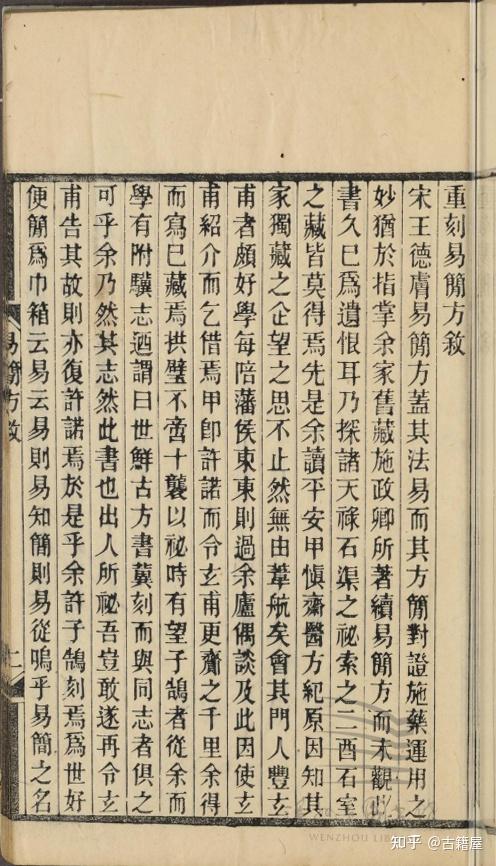 重刻易簡方敘
宋王德膚易簡方蓋其法易而其方簡對證施藥運用之
妙猶於指掌余家舊藏施政卿所著續易簡方而未觀此
書久已爲遺恨耳乃探諸天祿石渠之祕索之二酉石室
之藏皆莫得焉先是余讀平安甲愼齋醫方紀原因知其
家獨藏之企望之思不止然無由葦航矣會其門人豐玄
甫者頗好學每陪藩侯東東則過余廬偶談及此因使玄
甫紹介而乞借焉甲卽許諾而令玄甫更齎之千里余得
而寫已藏焉拱璧不啻十襲以祕時有望子鵠者從余而
學有附驥志迺謂曰世鮮古方書冀刻而與同志者俱之
可乎余乃然其志然此書也出人所祕吾豈敢遂再令玄
甫告其故則亦復許諾焉於是乎余許子鵠刻焉爲世好
便簡爲巾箱云易云易則易知簡則易從嗚乎易簡之名
易簡方敘
一
WENZHOU LIB
知乎 @古籍屋